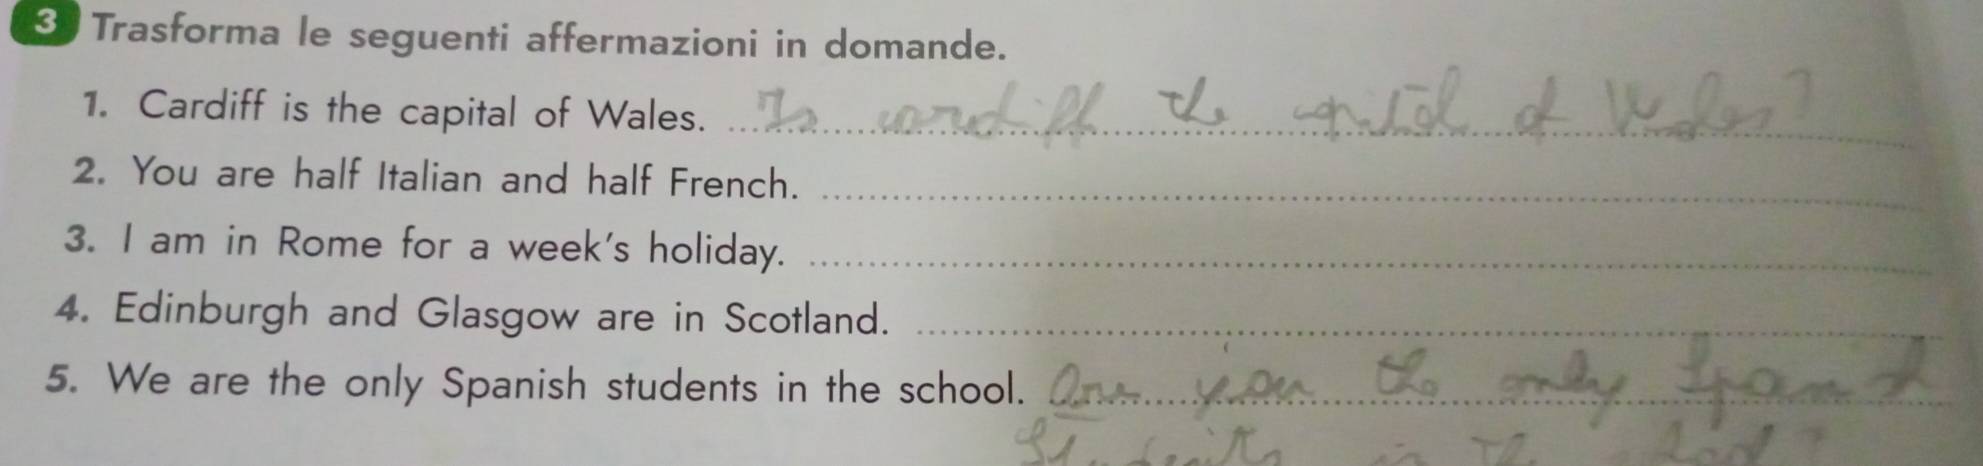 3 Trasforma le seguenti affermazioni in domande.
1. Cardiff is the capital of Wales. Is cardiff the capital of Wales?
2. You are half Italian and half French.
3. I am in Rome for a week's holiday.
4. Edinburgh and Glasgow are in Scotland.
5. We are the only Spanish students in the school. Are you the only
Students in the